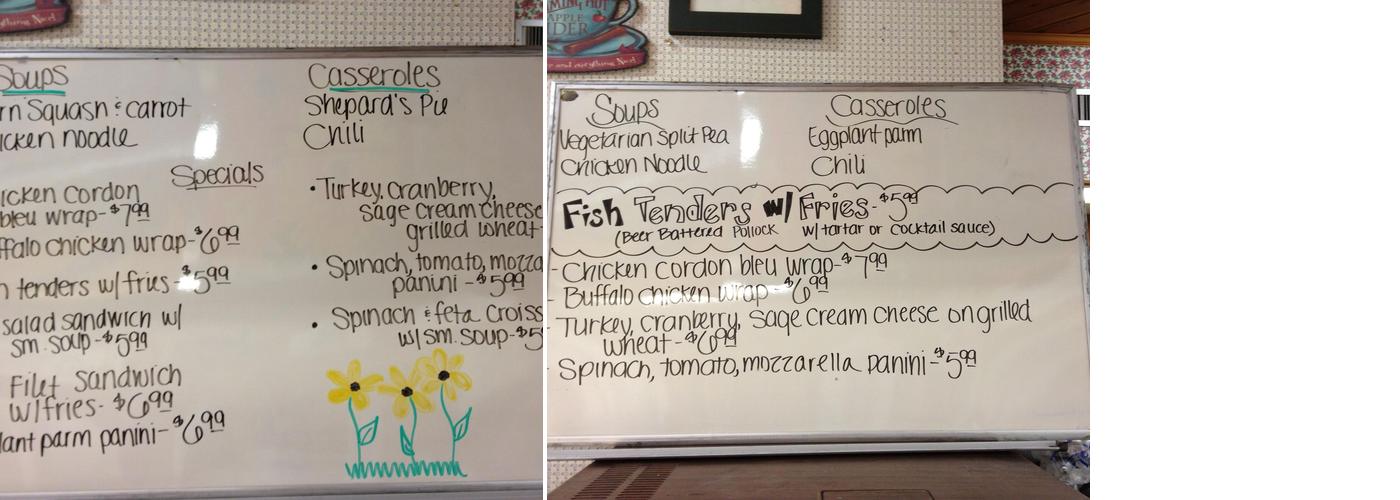 Soups
Casseroles
Squash & carrot
noodle
Shepard's Pie
Chili
Specials
cordon
bleu wrap-$7.99
chicken wrap-$6.99
tenders w/fries-$5.99
salad sandwich w/
sm. soup-$5.99
Filet Sandwich
w/fries-$6.99
parm panini-$6.99
•Turkey, cranberry,
sage cream cheese
grilled wheat-
• Spinach, tomato,
panini-$5.99
• Spinach & feta
w/sm. soup-
MING HOT
APPLE
DER
Soups
Vegetarian Split Pea
Chicken Noodle
Casseroles
Eggplant parm
Chili
Fish Tenders w/ Fries-$5.99
(Beer Battered Pollock w/tartar or cocktail sauce)
-Chicken cordon bleu wrap-$7.99
-Buffalo chicken wrap-$6.99
Turkey, cranberry, sage cream cheese on grilled
wheat-$6.99
-Spinach, tomato, mozzarella panini-$5.99